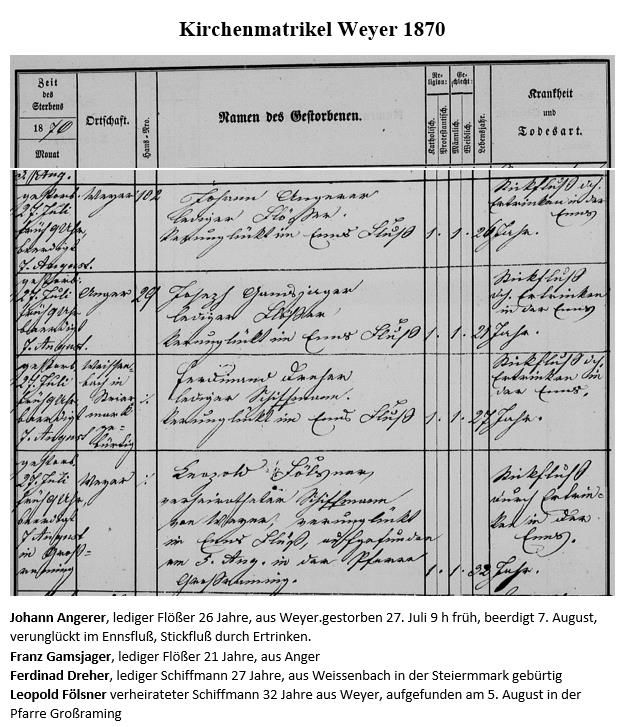 Kirchenmatrikel Weyer 1870
Zeit
des
Sterbens
1870
Monat
Ortschaft.
Haus-Nro.
Namen des Gestorbenen.
Religion:
Katholisch.
Protestantisch.
Geschlecht:
Männlich.
Weiblich.
Lebensjahr.
Krankheit
und
Todesart.
Aug.
gestorb.
27. Juli
früh 9 Uhr,
beerdigt
7. August.
Weyer
102
Johann Angerer
lediger Flößer.
Verunglückt im Enns Fluß
1.
1.
26 Jahr.
Stickfluß dch.
Ertrinken in der
Enns
gestorb.
27. Juli
früh 9 Uhr
beerdigt
7. August.
Anger
29
Joseph Gamsjager
lediger Flößer
Verunglückt im Enns Fluß
1.
1.
21 Jahr.
Stickfluß
dch. Ertrinken
in der Enns
gestorb.
27. Juli
früh 9 Uhr
beerdigt
7. August
Weissen-
bach in
Steier
mark
ge-
bürtig
Ferdinand Dreher
lediger Schiffmann.
Verunglückt im Enns Fluß
1.
1.
27 Jahr.
Stickfluß dch.
Ertrinken in
der Enns.
gestorb.
27. Juli
früh 9 Uhr,
beerdigt
7 August
in Groß-
raming
Weyer
Leopold Fölsner
verheiratheter Schiffmann
von Weyer, verunglückt
im Enns Fluß, aufgefunden
am 5. Aug. in der Pfarre
Großraming.
1.
1.
32 Jahr.
Stickfluß
durch Ertrin-
ken in der
Enns.
Johann Angerer, lediger Flößer 26 Jahre, aus Weyer.gestorben 27. Juli 9 h früh, beerdigt 7. August,
verunglückt im Ennsfluß, Stickfluß durch Ertrinken.
Franz Gamsjager, lediger Flößer 21 Jahre, aus Anger
Ferdinad Dreher, lediger Schiffmann 27 Jahre, aus Weissenbach in der Steiermmark gebürtig
Leopold Fölsner verheirateter Schiffmann 32 Jahre aus Weyer, aufgefunden am 5. August in der
Pfarre Großraming